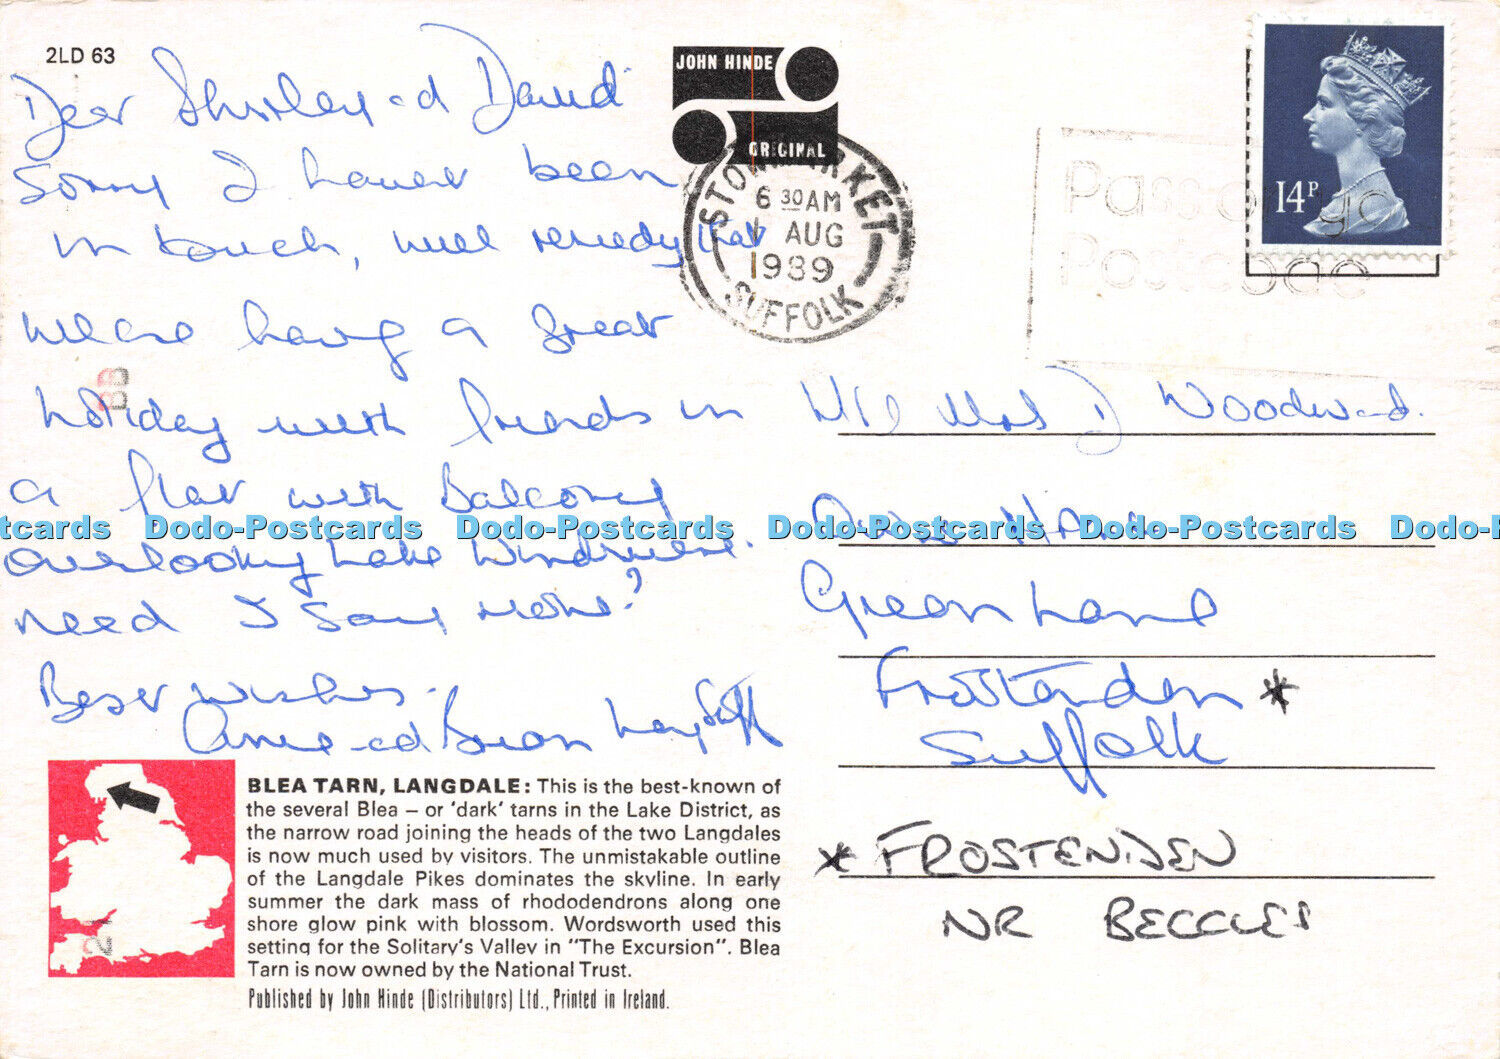 2LD 63
Dear Shirley and David
Sorry I haven't been
in touch, will remedy that
We are having a great
holiday with friends in
a flat with Balcony
overlooking Lake Windmere.
need I say more?
Best wishes.
Anne and Brian
JOHN HINDE
ORIGINAL
STOWMARKET
6 30 AM
AUG
1989
SUFFOLK
14P
Passonyo
Postcode
Mrs D Woodward.
Green Lane
Frostenden *
Suffolk
* FROSTENDEN
NR BECCLES
BB
21
Dodo-Postcards Dodo-Postcards Dodo-Postcards Dodo-Postcards
BLEA TARN, LANGDALE: This is the best-known of
the several Blea – or 'dark' tarns in the Lake District, as
the narrow road joining the heads of the two Langdales
is now much used by visitors. The unmistakable outline
of the Langdale Pikes dominates the skyline. In early
summer the dark mass of rhododendrons along one
shore glow pink with blossom. Wordsworth used this
setting for the Solitary's Valley in "The Excursion". Blea
Tarn is now owned by the National Trust.
Published by John Hinde (Distributors) Ltd., Printed in Ireland.